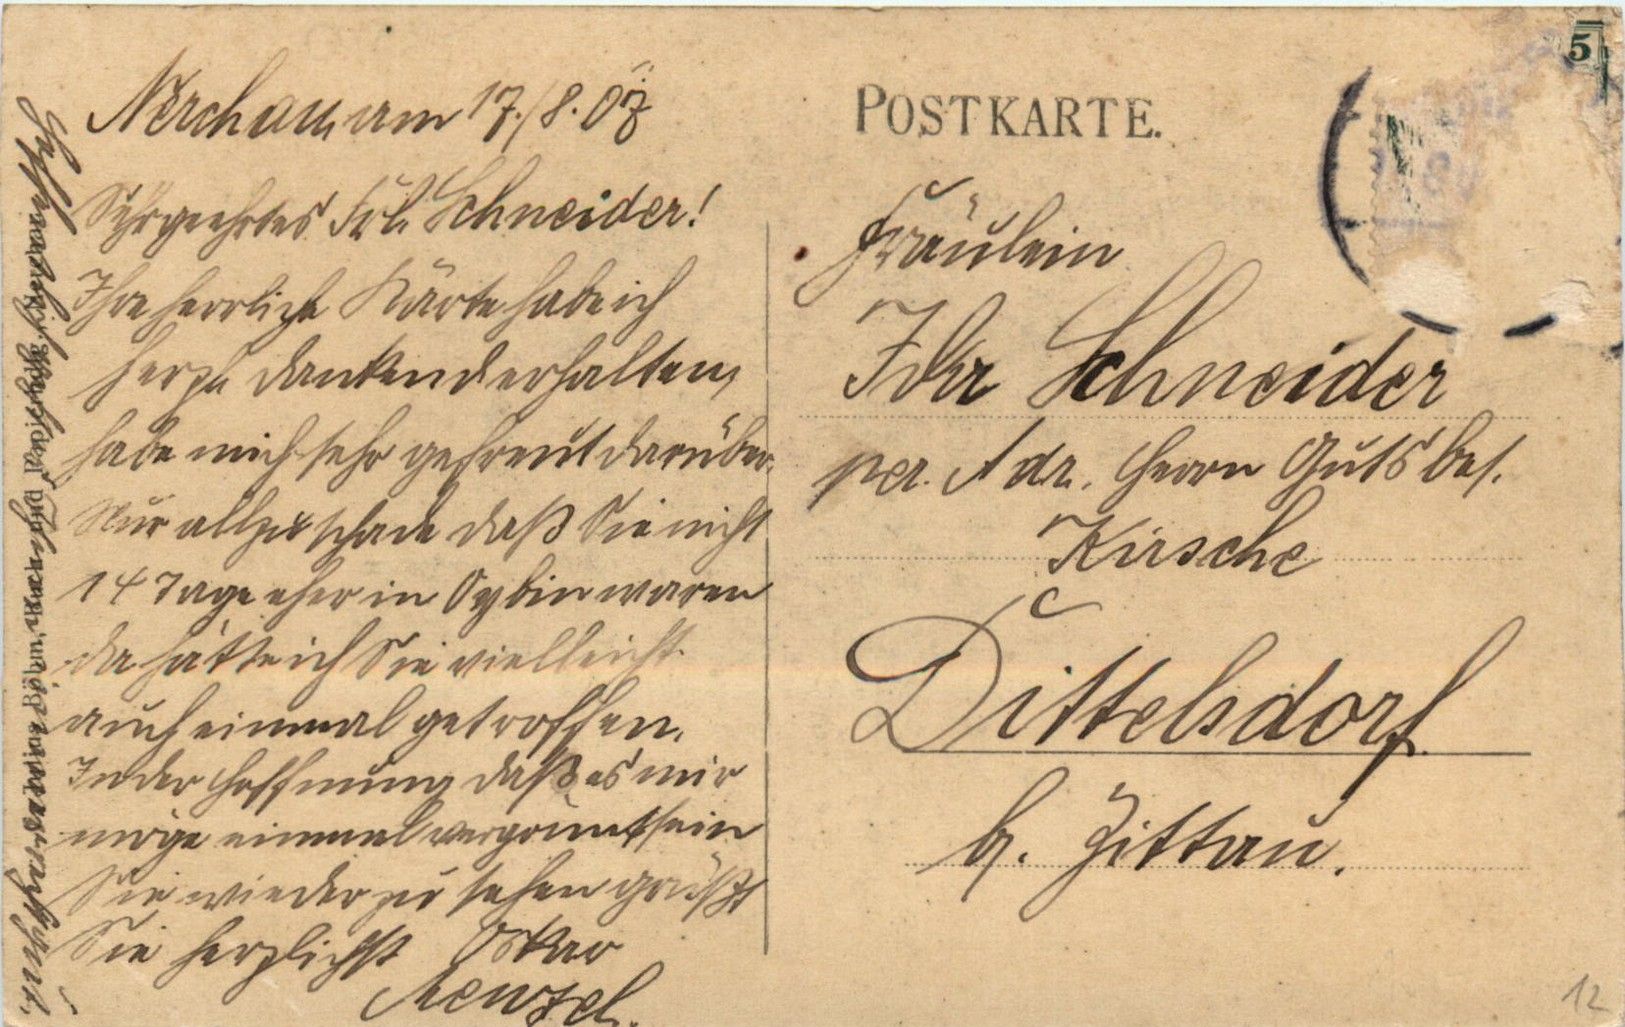 Nerchau, am 17./8. 07
Sehrgeehrtes Frl. Schneider!
Ihre herrliche Karte habe ich
herzl. dankend erhalten,
habe mich sehr gefreut darüber.
Nur allzu schade daß Sie nicht
14 Tage eher in Oybin waren
da hätte ich Sie vielleicht
auch einmal getroffen.
In der Hoffnung daß es mir
möge einmal vergönnt sein
Sie wieder zu sehen grüßt
Sie herzlichst Oskar
Menzel.
POSTKARTE.
5
Fräulein
Ida Schneider
per. Adr. Herrn Gutsbes.
Kirsche
Dittelsdorf
b. Zittau.
12